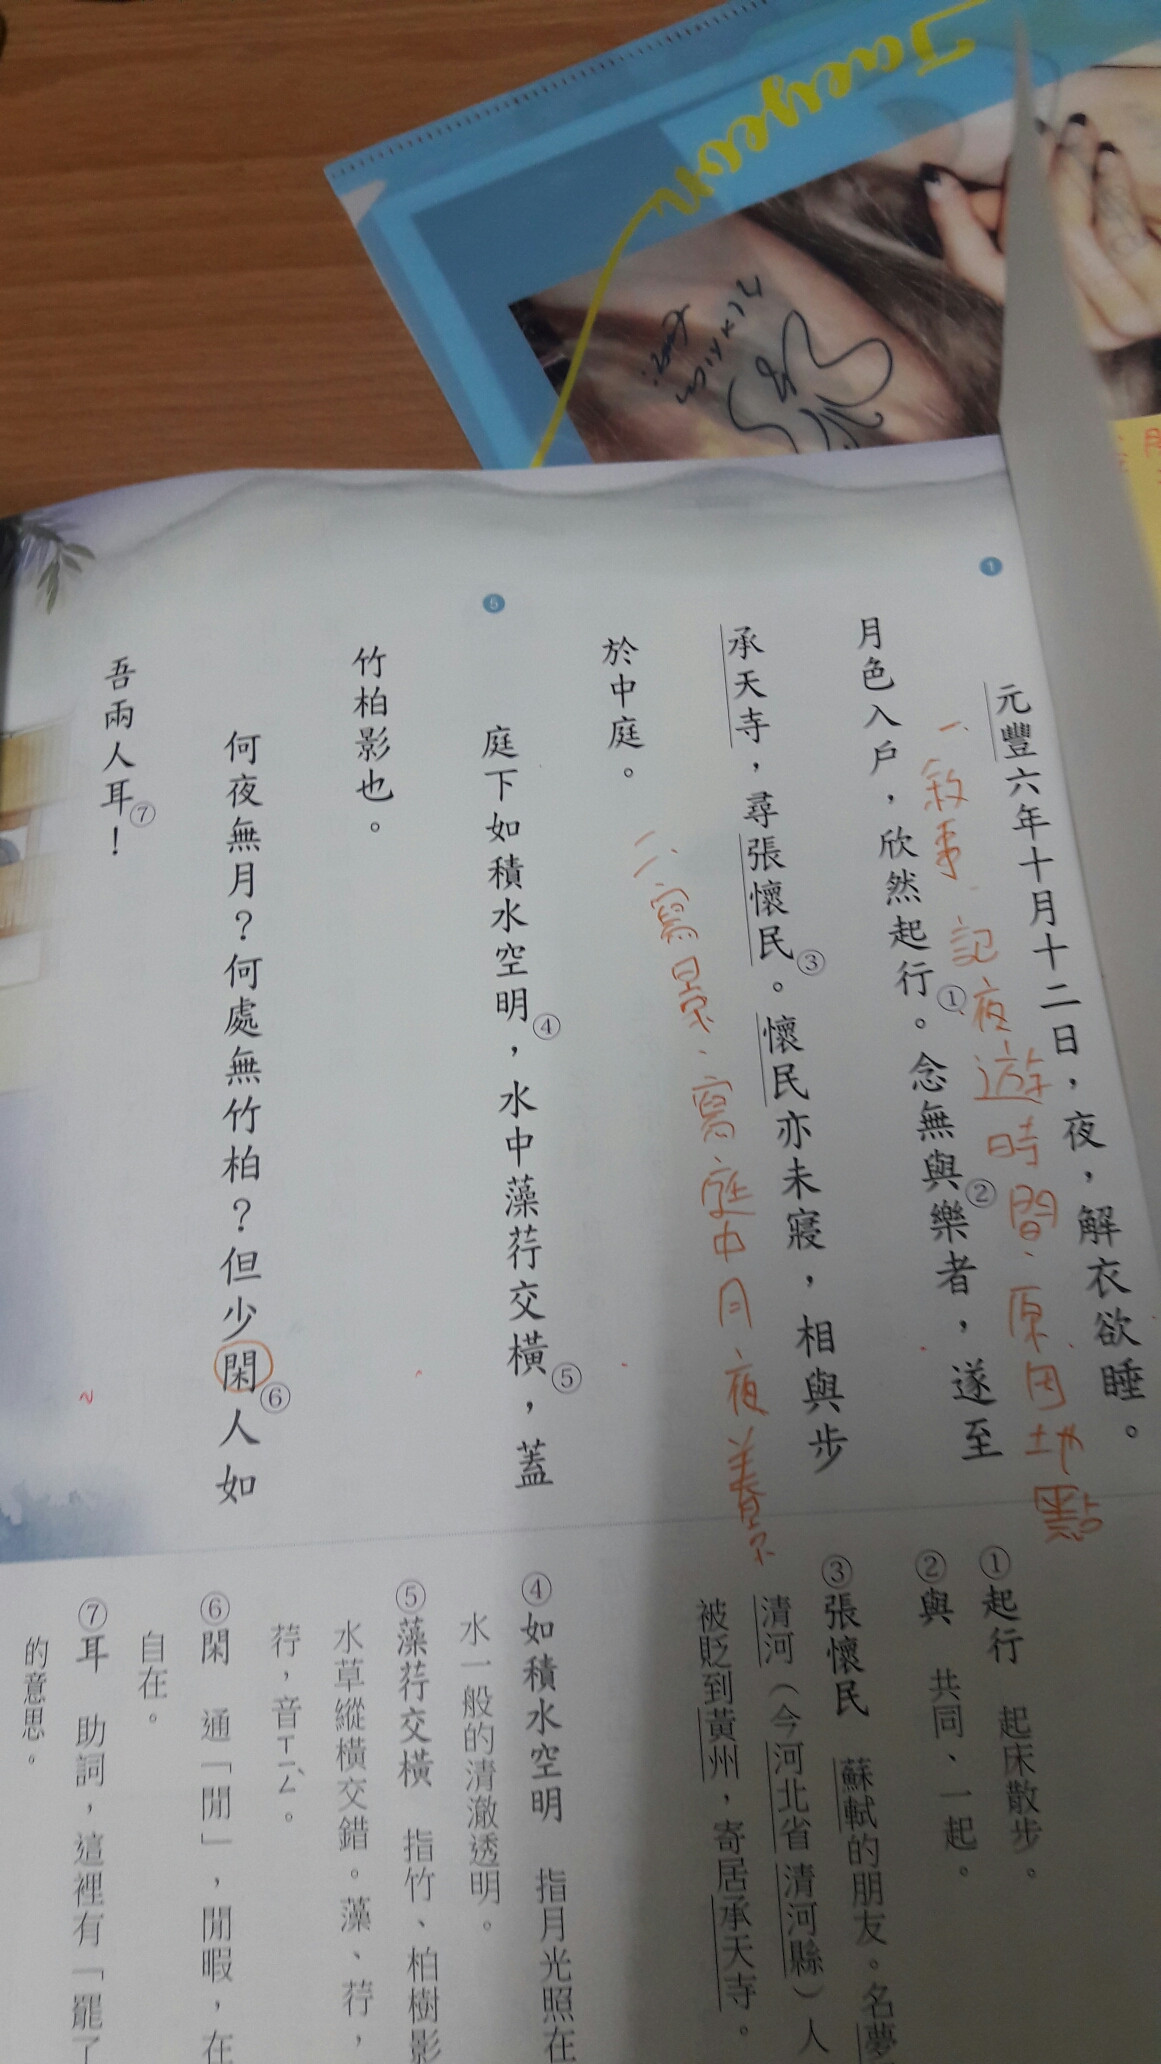 Taeyeon
1
元豐六年十月十二日，夜，解衣欲睡。
月色入戶，欣然起行①。念無與②樂者，遂至
承天寺，尋張懷民③。懷民亦未寢，相與步
於中庭。
5
庭下如積水空明④，水中藻荇交橫⑤，蓋
竹柏影也。
何夜無月？何處無竹柏？但少閑⑥人如
吾兩人耳⑦！
一、敘事、記夜遊時間、原因、地點
二、寫景、寫庭中月夜美景
①起行　起床散步。
②與　共同、一起。
③張懷民　蘇軾的朋友。名夢
清河（今河北省清河縣）人
被貶到黃州，寄居承天寺。
④如積水空明　指月光照在
水一般的清澈透明。
⑤藻荇交橫　指竹、柏樹影
水草縱橫交錯。藻、荇，
荇，音ㄒㄧㄥˋ。
⑥閑　通「閒」，閒暇，在
自在。
⑦耳　助詞，這裡有「罷了
的意思。